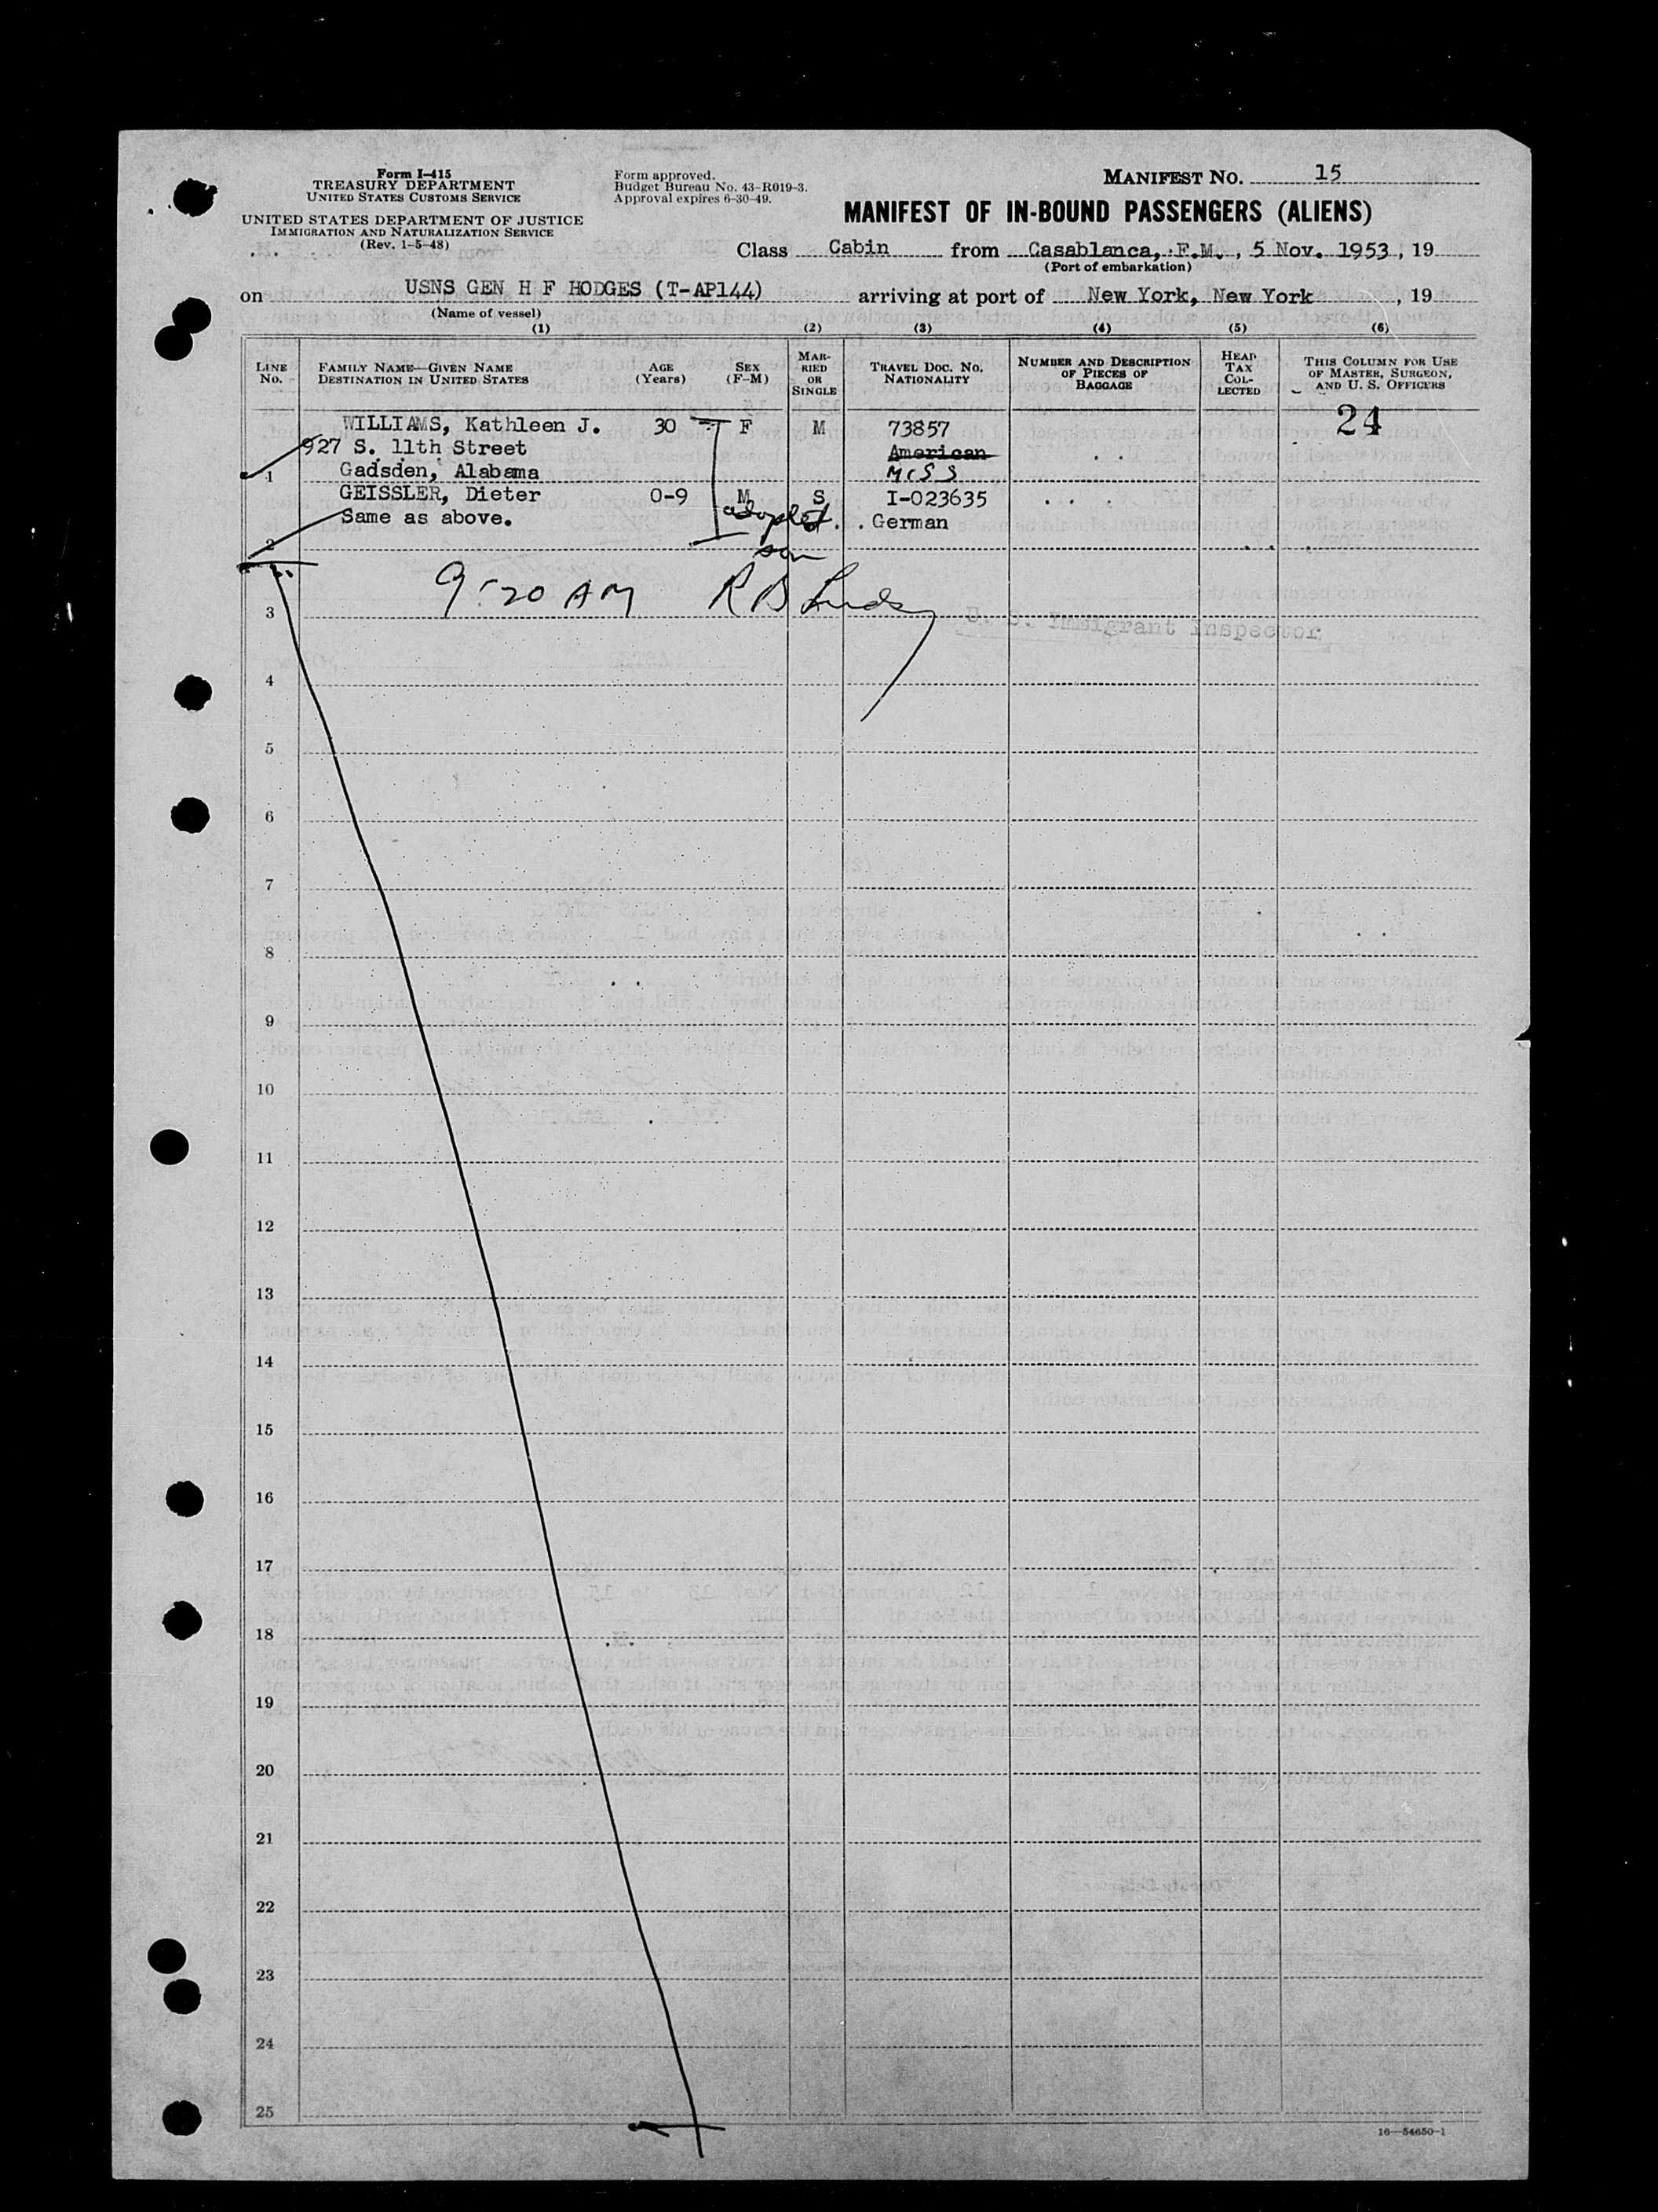 Form I-415
TREASURY DEPARTMENT
UNITED STATES CUSTOMS SERVICE
UNITED STATES DEPARTMENT OF JUSTICE
IMMIGRATION AND NATURALIZATION SERVICE
(Rev. 1-5-48)
Form approved.
Budget Bureau No. 43-R019-3.
Approval expires 6-30-49.
MANIFEST NO. 15
MANIFEST OF IN-BOUND PASSENGERS (ALIENS)
Class Cabin from Casablanca, F.M., 5 Nov. 1953, 19
(Port of embarkation)
on USNS GEN H F HODGES (T-AP144) arriving at port of New York, New York, 19
(Name of vessel)
(1) (2) (3) (4) (5) (6)
LINE No.
FAMILY NAME—GIVEN NAME
DESTINATION IN UNITED STATES
AGE (Years)
SEX (F-M)
MARRIED OR SINGLE
TRAVEL DOC. NO.
NATIONALITY
NUMBER AND DESCRIPTION OF PIECES OF BAGGAGE
HEAD TAX COLLECTED
THIS COLUMN FOR USE OF MASTER, SURGEON, AND U. S. OFFICERS
WILLIAMS, Kathleen J. 30 F M 73857 24
927 S. 11th Street American
1 Gadsden, Alabama
GEISSLER, Dieter 0-9 M S I-023635
Same as above. adopted German
2 son
9:20 AM R B
3 U. S. Immigrant Inspector
4
5
6
7
8
9
10
11
12
13
14
15
16
17
18
19
20
21
22
23
24
25
16—54650-1